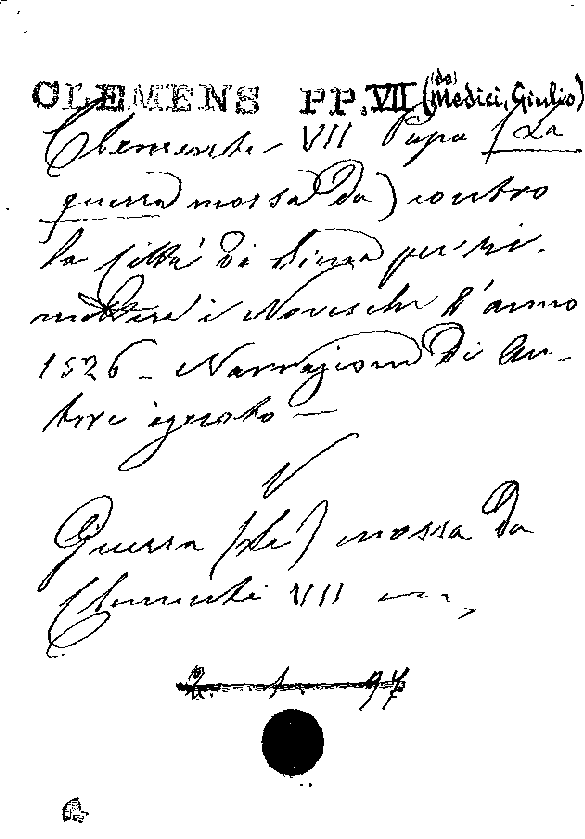 CLEMENS PP. VII (de' Medici, Giulio)
Clemente VII Papa (La
guerra mossa da) contro
la Città di Siena per ri-
mettere i Noveschi l'anno
1526 - Narrazione di Au-
tore ignoto -
V
Guerra (La) mossa da
Clemente VII
2. 1. 97